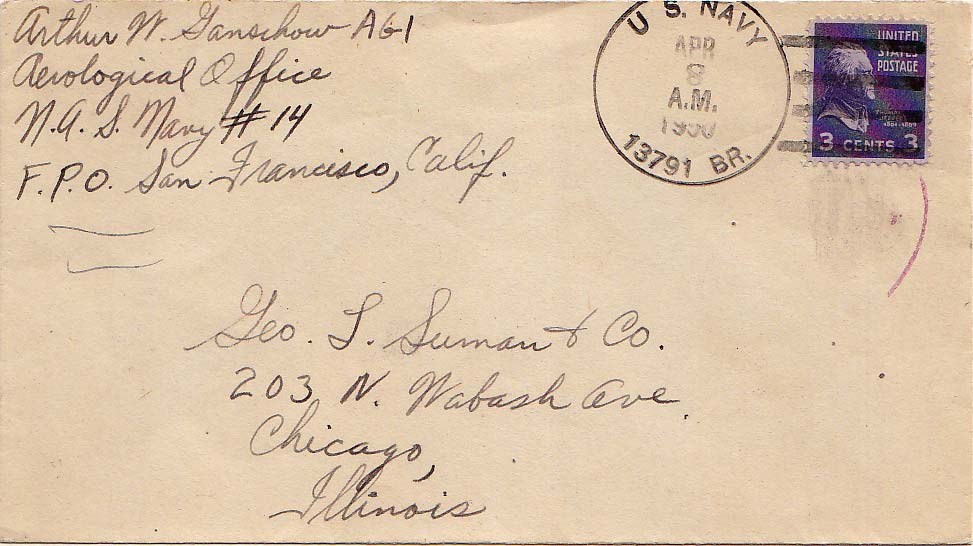 Arthur W. Ganschow AG1
Aerological Office
N.A.S. Navy # 14
F.P.O. San Francisco, Calif.
U. S. NAVY
APR
8
A.M.
1950
13791 BR.
UNITED
STATES
POSTAGE
THOMAS
JEFFERSON
3 CENTS 3
Geo. S. Suman & Co.
203 N. Wabash Ave.
Chicago,
Illinois